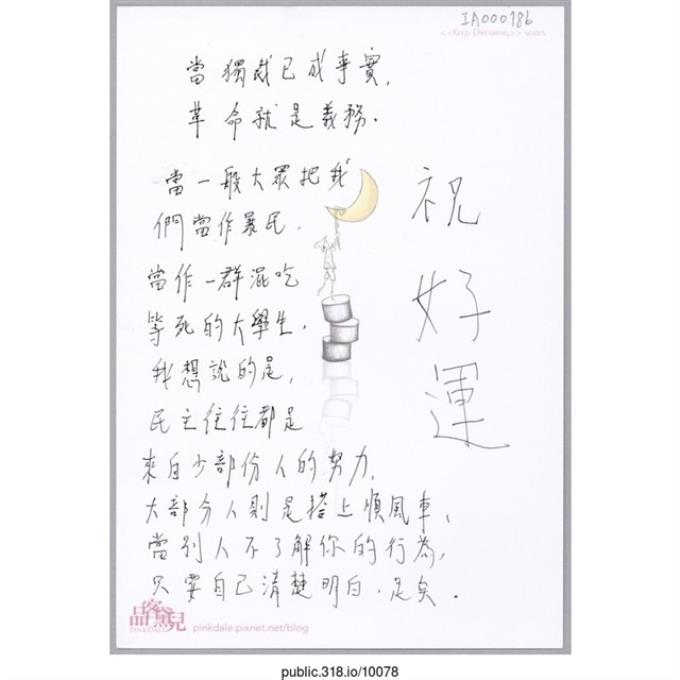 IA000786
<<KEEP DREAMING>> SERIES
當獨裁已成事實,
革命就是義務.
當一般大眾把我
們當作暴民,
當作一群混吃
等死的大學生.
我想說的是,
民主往往都是
來自少部份人的努力,
大部分人則是搭上順風車、
當別人不了解你的行為,
只要自己清楚明白.足矣.
祝
好
運
品客黛兒
PINKDALE
pinkdale.pixnet.net/blog
public.318.io/10078